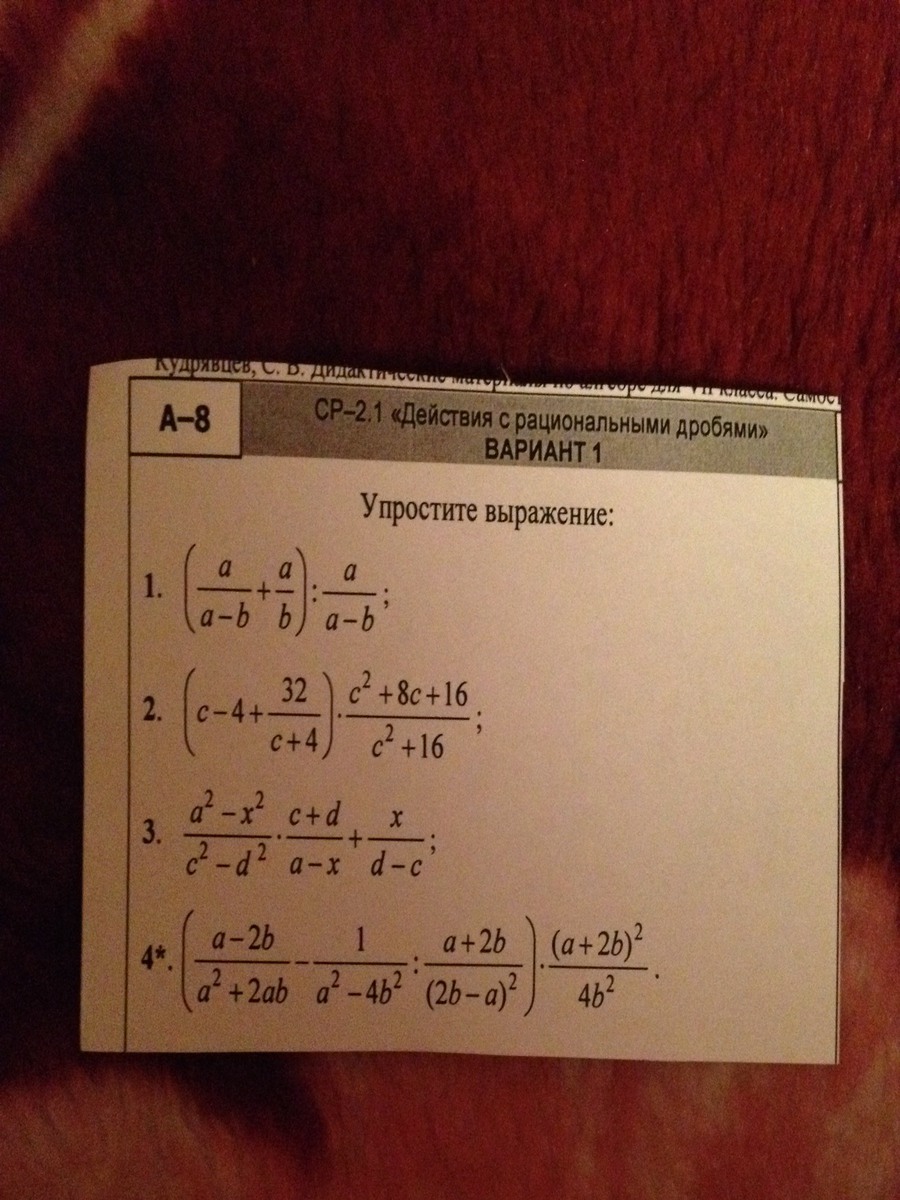 Кудрявцев, С. В. Дидактические материалы по алгебре для VII класса. Самост
А–8
СР–2.1 «Действия с рациональными дробями»
ВАРИАНТ 1
Упростите выражение:
1. (a/(a−b) + a/b) : a/(a−b);
2. (c−4+32/(c+4)) · (c²+8c+16)/(c²+16);
3. (a²−x²)/(c²−d²) · (c+d)/(a−x) + x/(d−c);
4*. ((a−2b)/(a²+2ab) − 1/(a²−4b²) : (a+2b)/(2b−a)²) · (a+2b)²/4b².